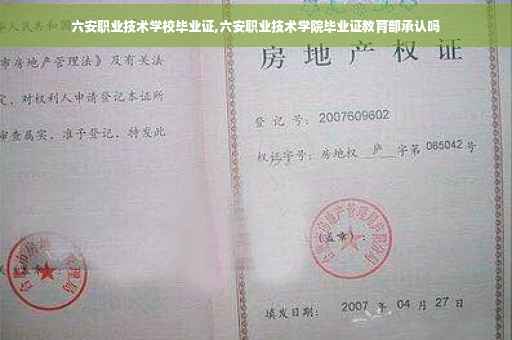 六安职业技术学校毕业证,六安职业技术学院毕业证教育部承认吗
华人民共和国
市房地产管理法》及有关法
定,对权利人申请登记本证所
审查属实,准予登记,特发此
房地产权证
登记号: 2007609602
权证字号: 房地权 庐 字第 065042 号
(盖章):
填发日期: 2007 年 04 月 27 日